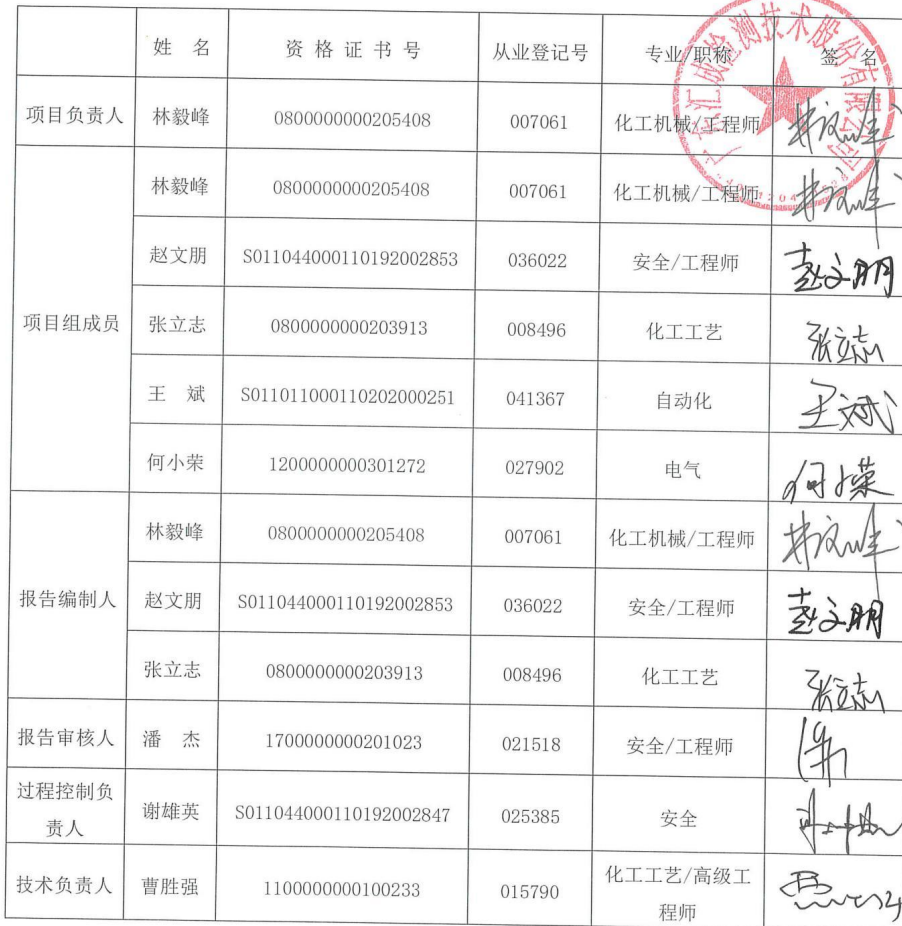 姓 名 资 格 证 书 号 从业登记号 专业/职称 签 名
项目负责人 林毅峰 0800000000205408 007061 化工机械/工程师
项目组成员 林毅峰 0800000000205408 007061 化工机械/工程师
赵文朋 S011044000110192002853 036022 安全/工程师 赵文朋
张立志 0800000000203913 008496 化工工艺 张立志
王 斌 S011011000110202000251 041367 自动化 王斌
何小荣 1200000000301272 027902 电气 何小荣
报告编制人 林毅峰 0800000000205408 007061 化工机械/工程师
赵文朋 S011044000110192002853 036022 安全/工程师 赵文朋
张立志 0800000000203913 008496 化工工艺 张立志
报告审核人 潘 杰 1700000000201023 021518 安全/工程师
过程控制负
责人 谢雄英 S011044000110192002847 025385 安全
技术负责人 曹胜强 1100000000100233 015790 化工工艺/高级工
程师
广东汇成检测技术股份有限公司